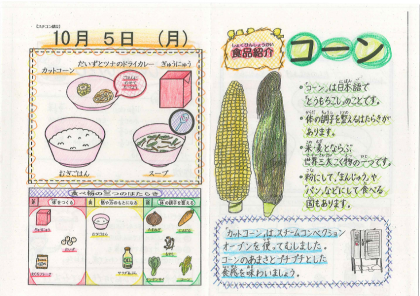 10月5日（月）
だいずとツナのドライカレー
ぎゅうにゅう
カットコーン
むぎごはん
スープ
食べ物の三つのはたらき
しょくひんしょうかい
食品紹介
コーン
・「コーン」は日本語で
とうもろこしのことです。
・体の調子を整えるはたらきが
あります。
・米・麦とならぶ
世界三大こく物の一つです。
・粉にして、「まんじゅう」や
「パン」などにして食べる
国もあります。
「カットコーン」はスチームコンベクション
オーブンを使ってむしました。
コーンのあまさとプチプチとした
食感を味わいましょう。